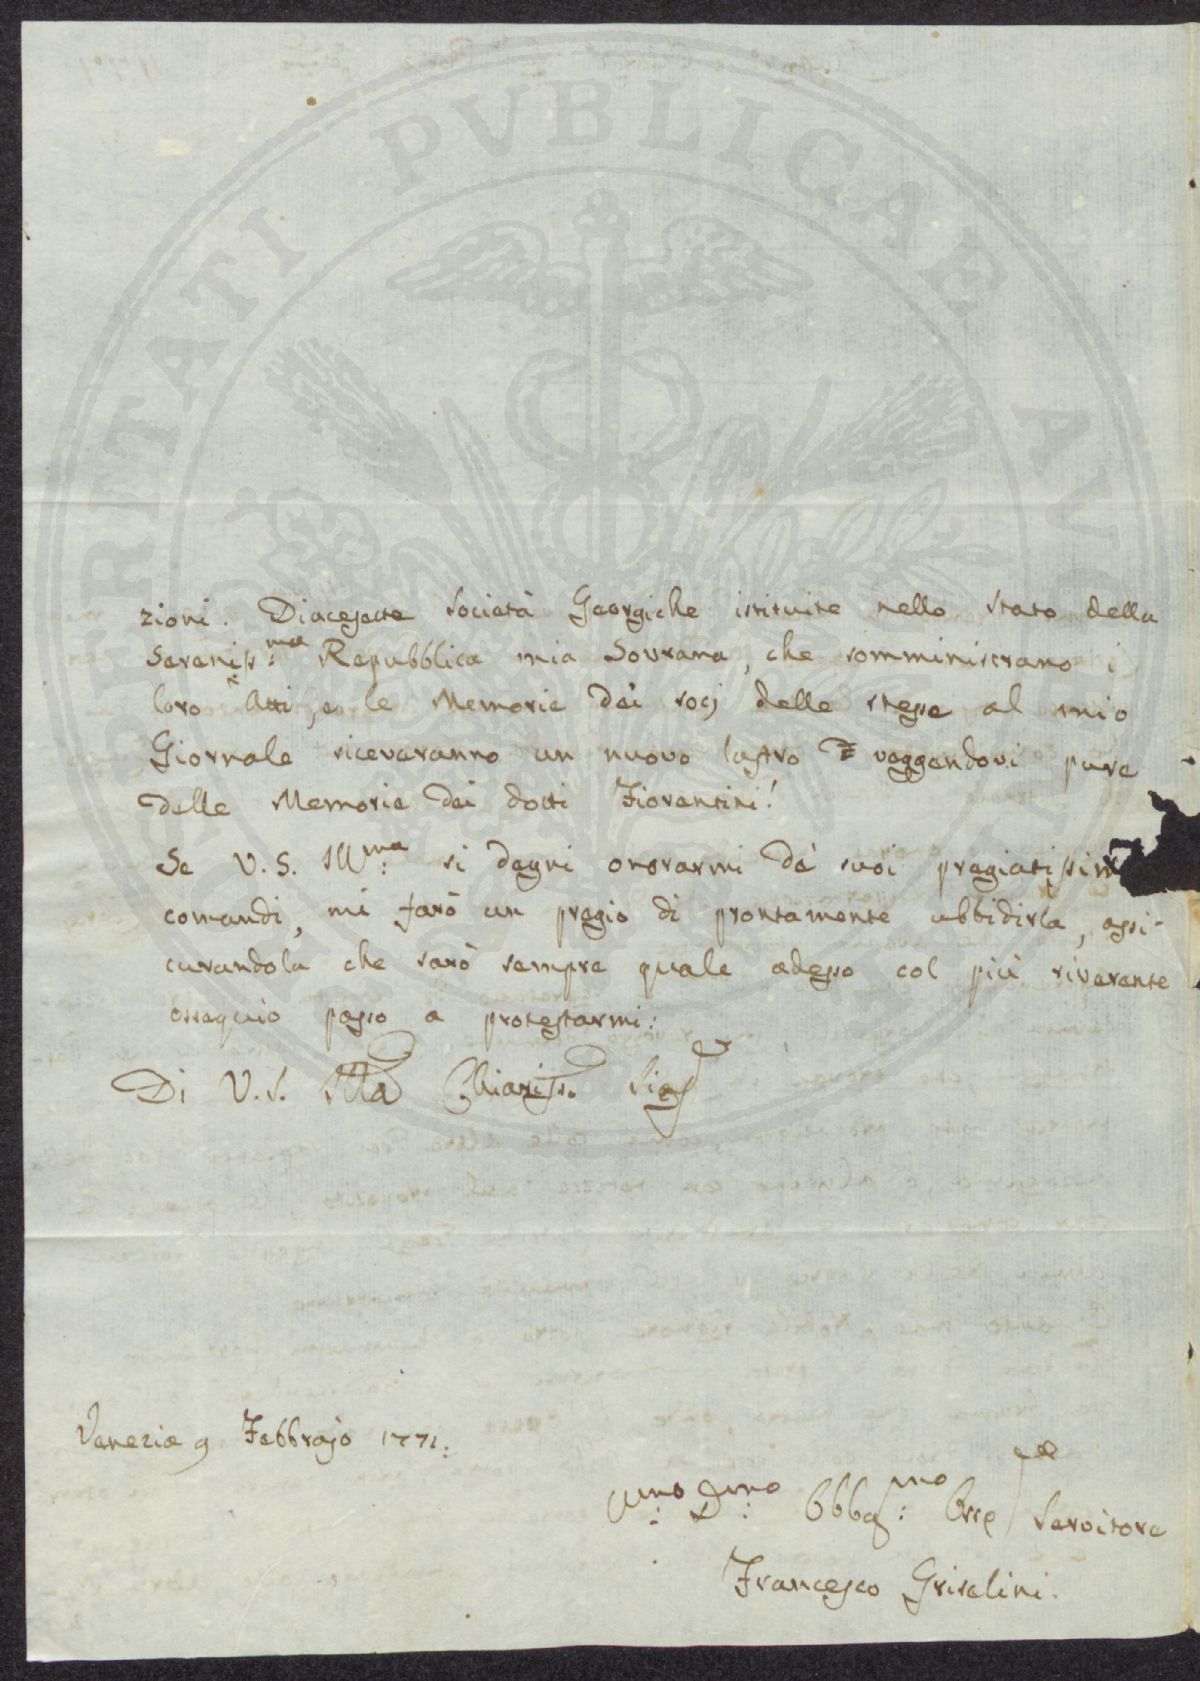 PROSPERITATI PVBLICAE AVGENDAE
zioni. Diecesette Società Georgiche istituite nello Stato della
Sereniss:ma Repubblica mia Sovrana, che somministrano i
loro Atti, e le Memorie dei socj delle stesse al mio
Giornale riceveranno un nuovo lustro veggendovi pure
delle Memorie dei dotti Fiorentini!
Se V.S. Ill:ma si degni onorarmi de' suoi pregiatissim
comandi, mi farò un pregio di prontamente ubbidirla, assi-
curandola che sarò sempre quale adesso col più riverente
ossequio passo a protestarmi:
Di V.S. Illa Chiariss. Sig
Venezia 9 Febbrajo 1771:
Umo: Dmo: Obbg:mo Servitore
Francesco Griselini.